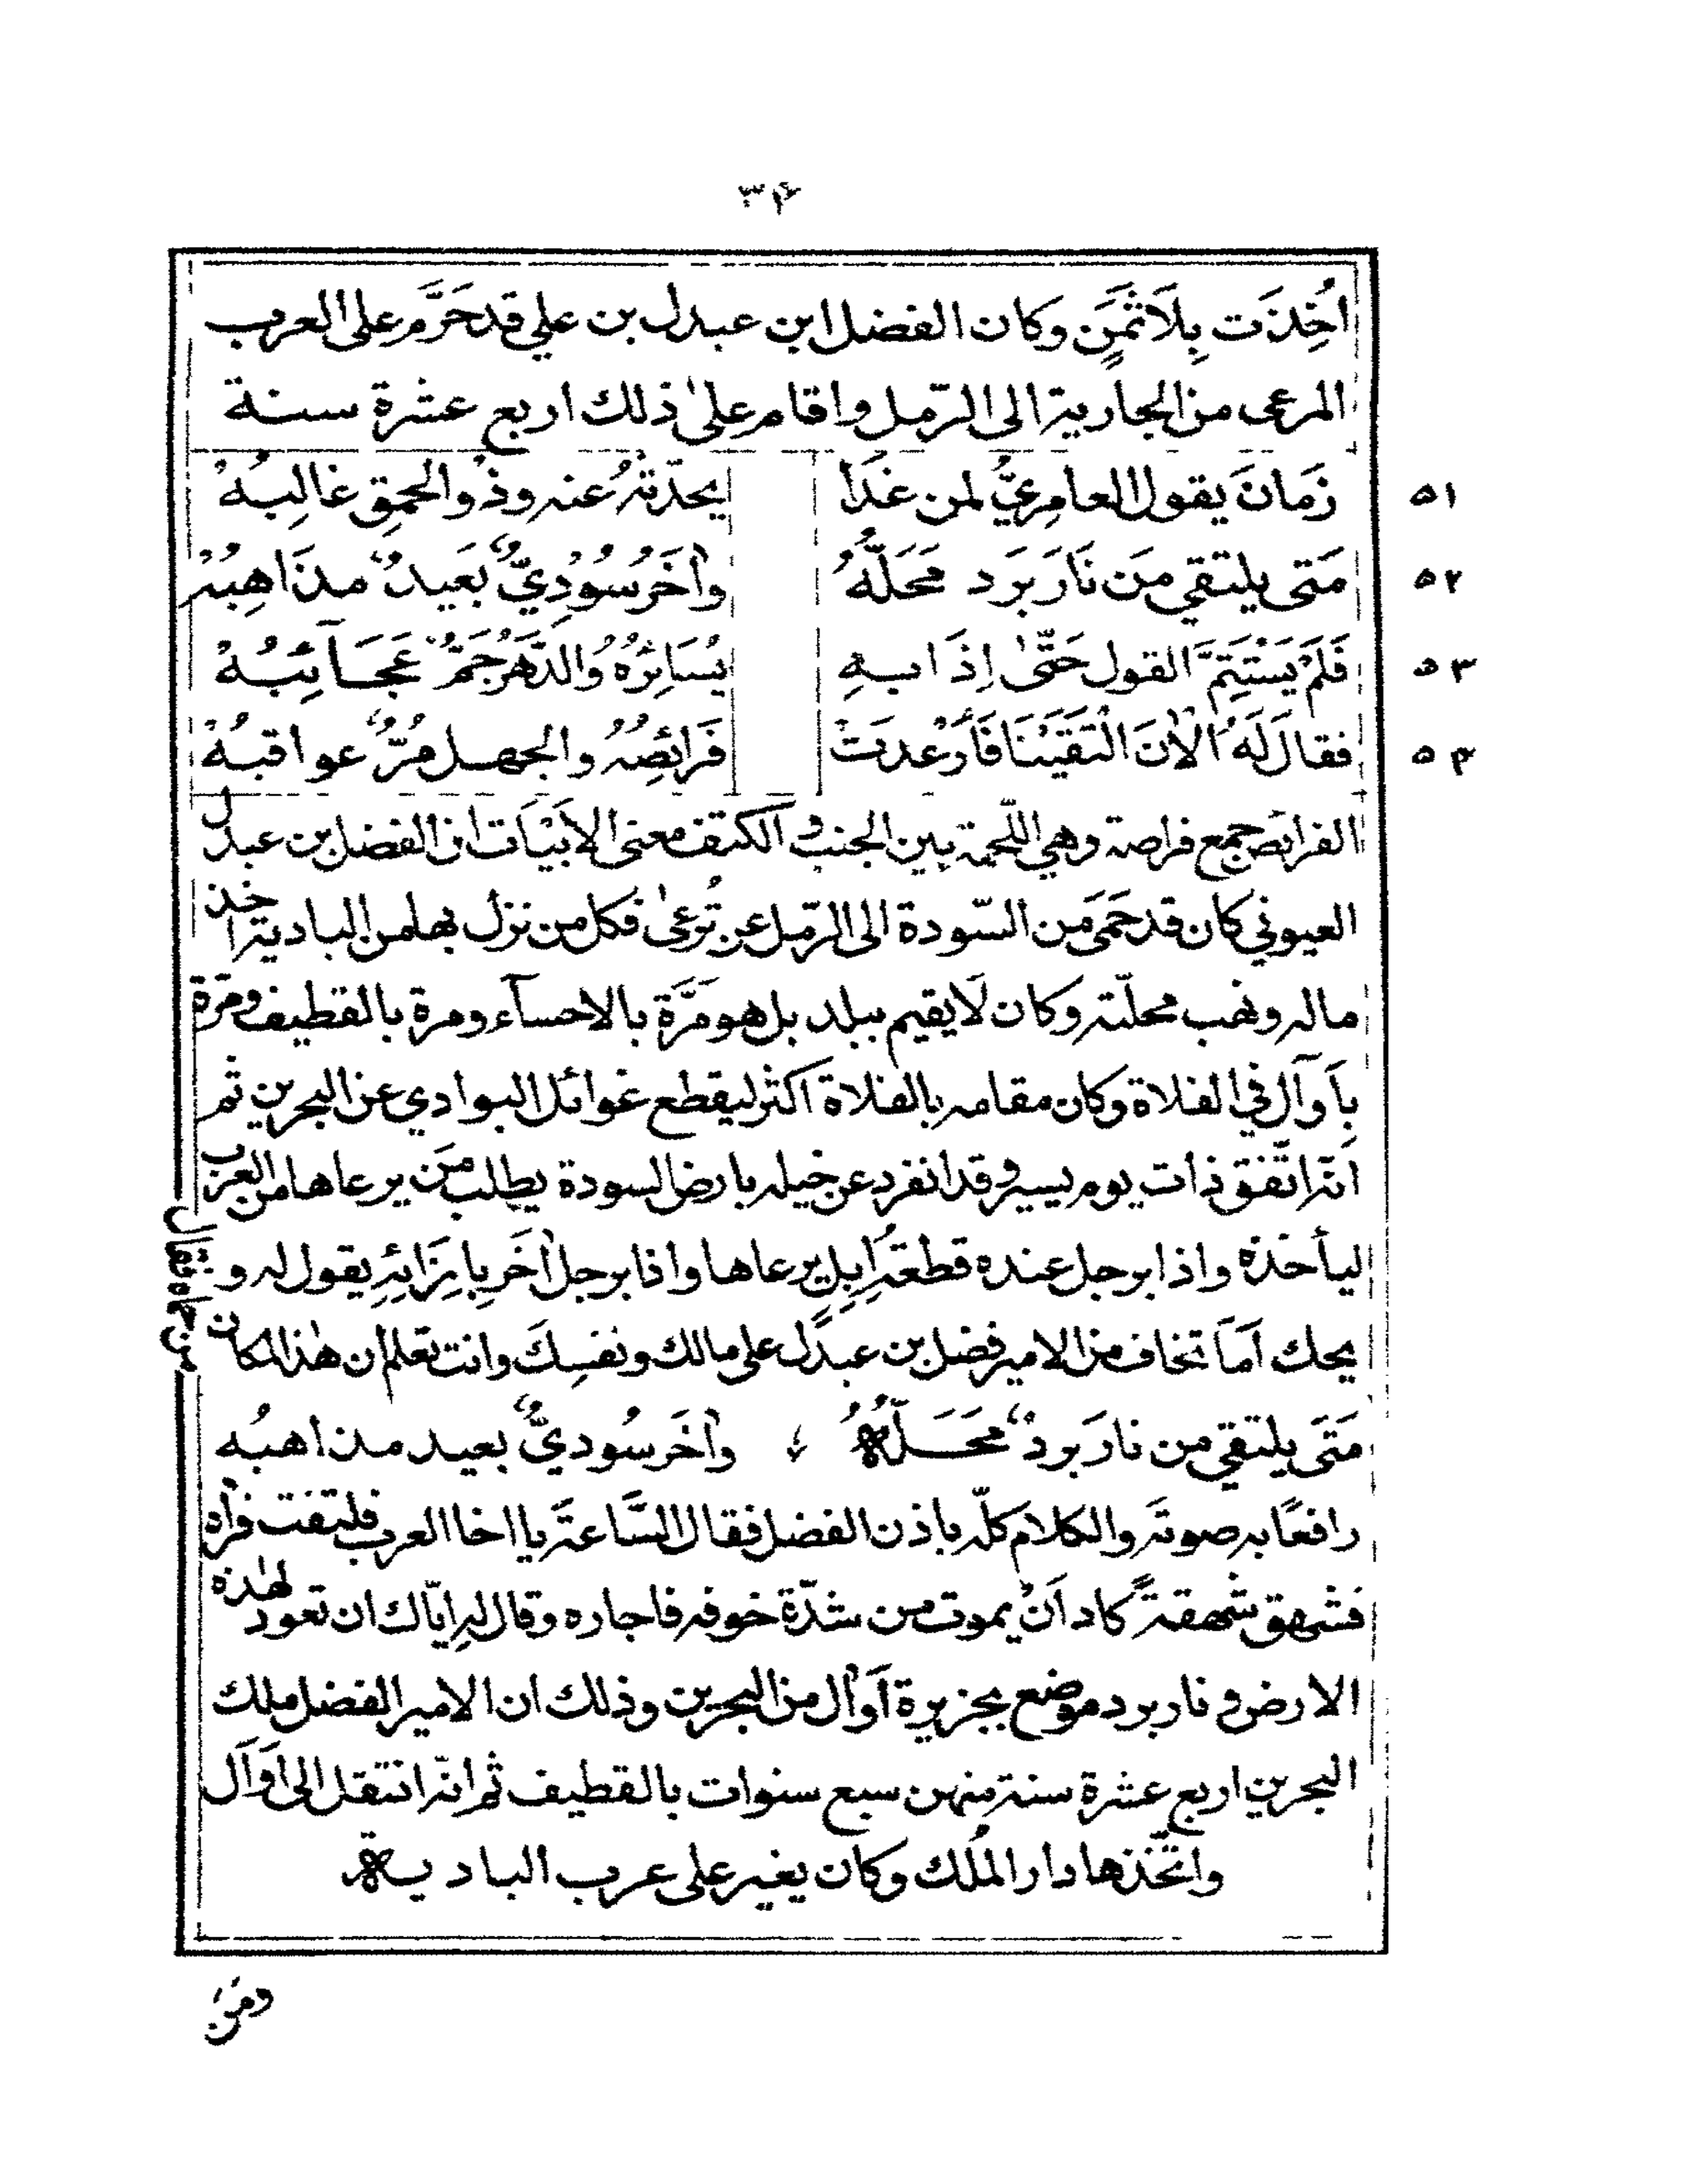 ۳۴
اُخِذَت بِلَا ثَمَنٍ وكان الفضل ابن عبدل بن علي قد حَرَّم على العرب
المرعى من الجارية الى الرّمل واقام علىٰ ذلك اربع عشرة سنة
۵۱ زَمانَ يقول العامِرِيُّ لمن غَدَا يحدّثهُ عنه وذُو الحمقِ غالِبُهُ
۵۲ مَتى يلتقي مَن نَارَ بَرَد مَحَلُّهُ واٰخَرُ سُوْدِيٌّ بَعيدٌ مذَاهِبُهُ
۵۳ فَلَمْ يَسْتَتِمَّ القول حَتّىٰ اِذَا بهِ يُسَائِرُهُ وَالدَّهْرُ جَمٌّ عَجَآئِبُهُ
۵۴ فقال لَهُ الْاٰنَ الْتَقَيْنَا فَأَرْعدَتْ فَرَائصُهُ والجهل مُرٌّ عواقبُهُ
الفرائص جمع فراصة وهي اللّحمة بين الجنب والكتف معنى الأبْيَات ان الفضل بن عبدل
العيوني كان قد حَمَى مَن السّودة الى الرّمل عن تُرعىٰ فكل من نزل بها من البادية اخذ
ماله ونهب محلّته وكان لَا يقيم ببلد بل هو مَرَّة بالاحسآء ومرة بالقطيف ومَرّة
بِأَوآل في الفلاة وكان مقامه بالفلاة اكثر ليقطع غوائل البوادي عن البحرين ثم
انّه اتّفق ذات يوم يسير وقد انفرد عن خيله بارض السودة يطلب مَن يرعاها من العرب
ليأخذه واذا برجل عنده قطعةُ اِبِلٍ يرعاها واذا برجل اٰخَر بِاِزَائِهِ يقول له و
يحك اَمَا تخاف من الامير فضل بن عبدل على مالك ونفسِكَ وانت تعلم ان هٰذا المكان
مَتَى يلتقي من نارَ بردٌ مَحَلّهُ واٰخَر سُوديٌّ بعيد مذاهبُه
رافعًا به صوتَه والكلام كلّه باذن الفضل فقال السَّاعَة يا اخا العرب فلتفت فراٰه
فشهق شهقةً كاد اَنْ يموت من شدّة خوفه فاجاره وقال له اِيّاك ان تعود لهٰذه
الارض و نار برد موضع بجزيرة أَوال من البحرين وذلك ان الامير الفضل ملك
البحرين اربع عشرة سنة منهن سبع سنوات بالقطيف ثم انّه انتقل الى أَوَال
واتّخذها دار المُلك وكان يغير على عرب البادية
ومَن